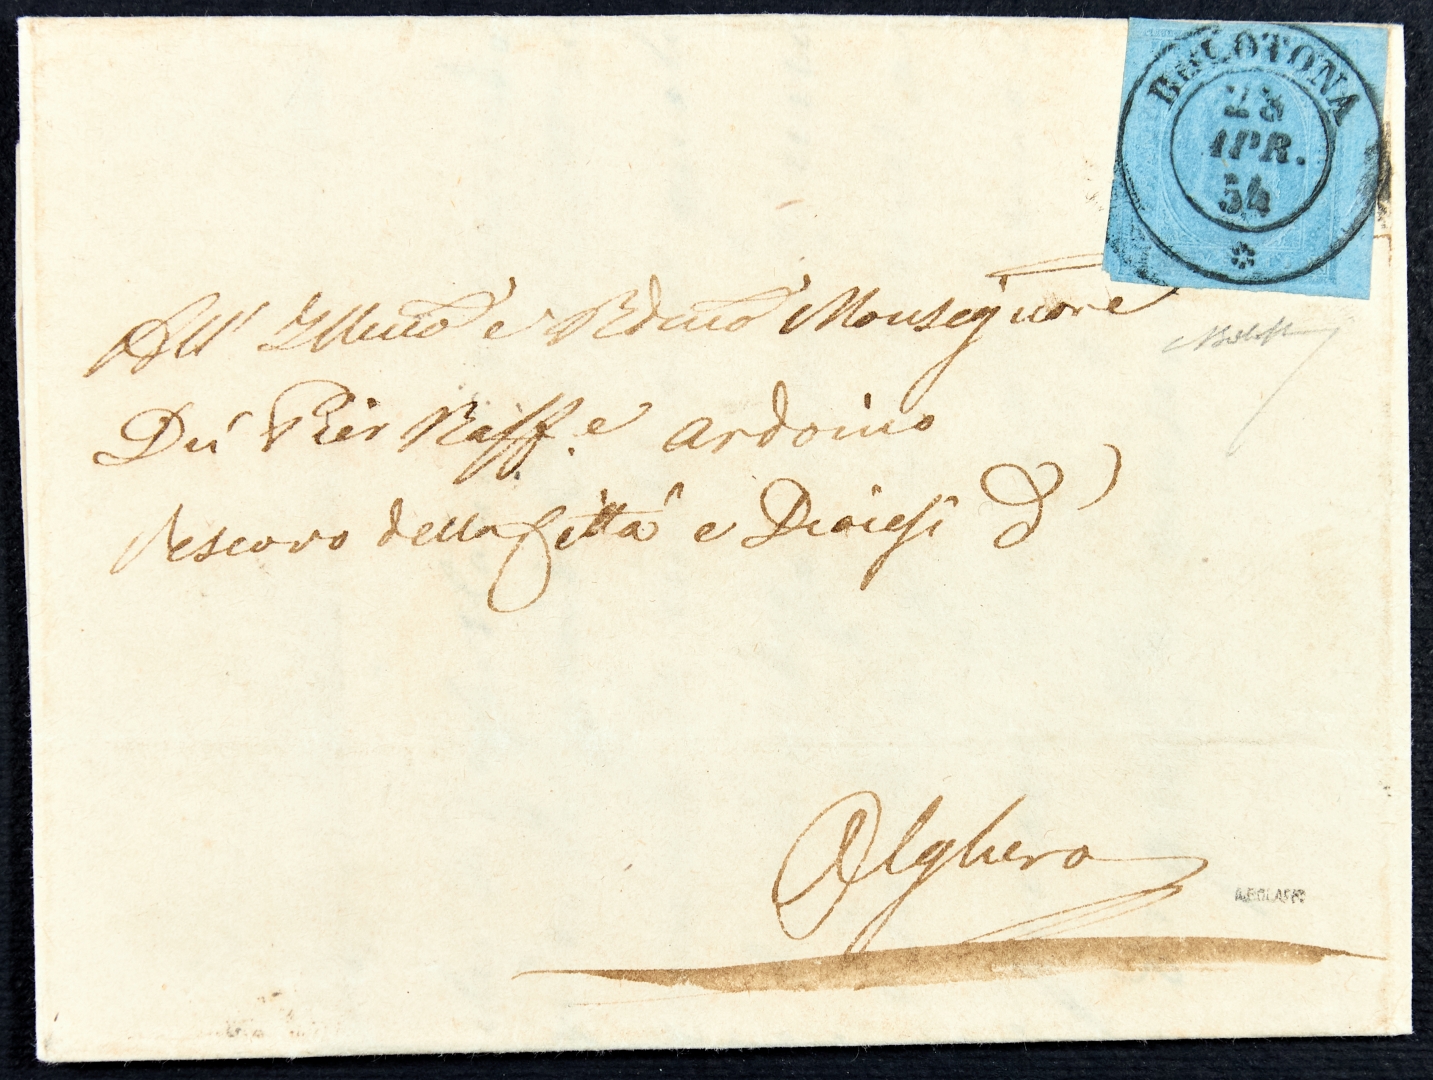 B LOTONA
23
APR.
54
All' Illmo e Rdmo Monsignore
Dn Pier Raff.e Ardoino
Vescovo della Città e Diocesi d'
Alghero
A.BOLAFFI